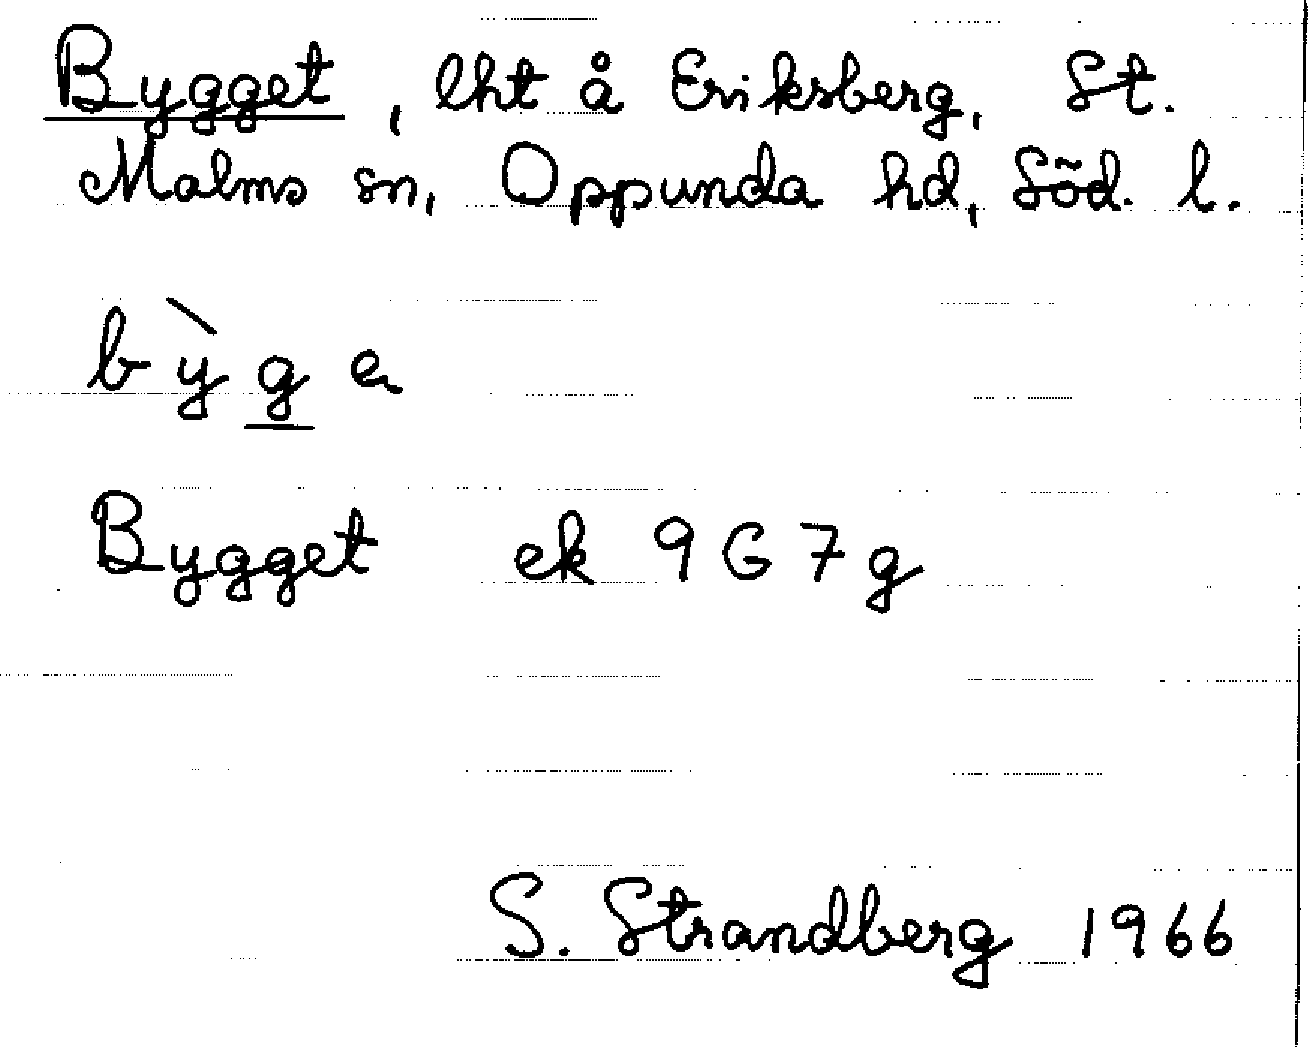 Bygget, lht å Eriksberg, St.
Malms sn, Oppunda hd, Söd. l.
bỳge
Bygget ek 9G7g
S. Strandberg 1966